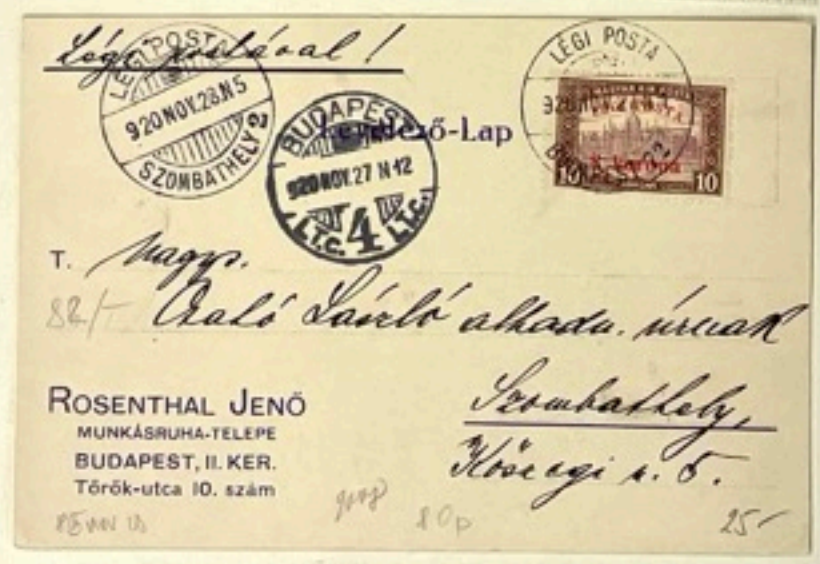 Légi postával!
LÉGI POSTA
920 NOV. 28. N 5
SZOMBATHELY 2
BUDAPEST
920 NOV. 27 N 12
L.T.C. 4 L.T.C.
Levelező-Lap
LÉGI POSTA
BUDAPEST 72
korona
10 10
T. Nagys.
László alhadn. úrnak
82/-
Szombathely,
Kőszegi u. 5.
ROSENTHAL JENŐ
MUNKÁSRUHA-TELEPE
BUDAPEST, II. KER.
Török-utca 10. szám
80p
25-